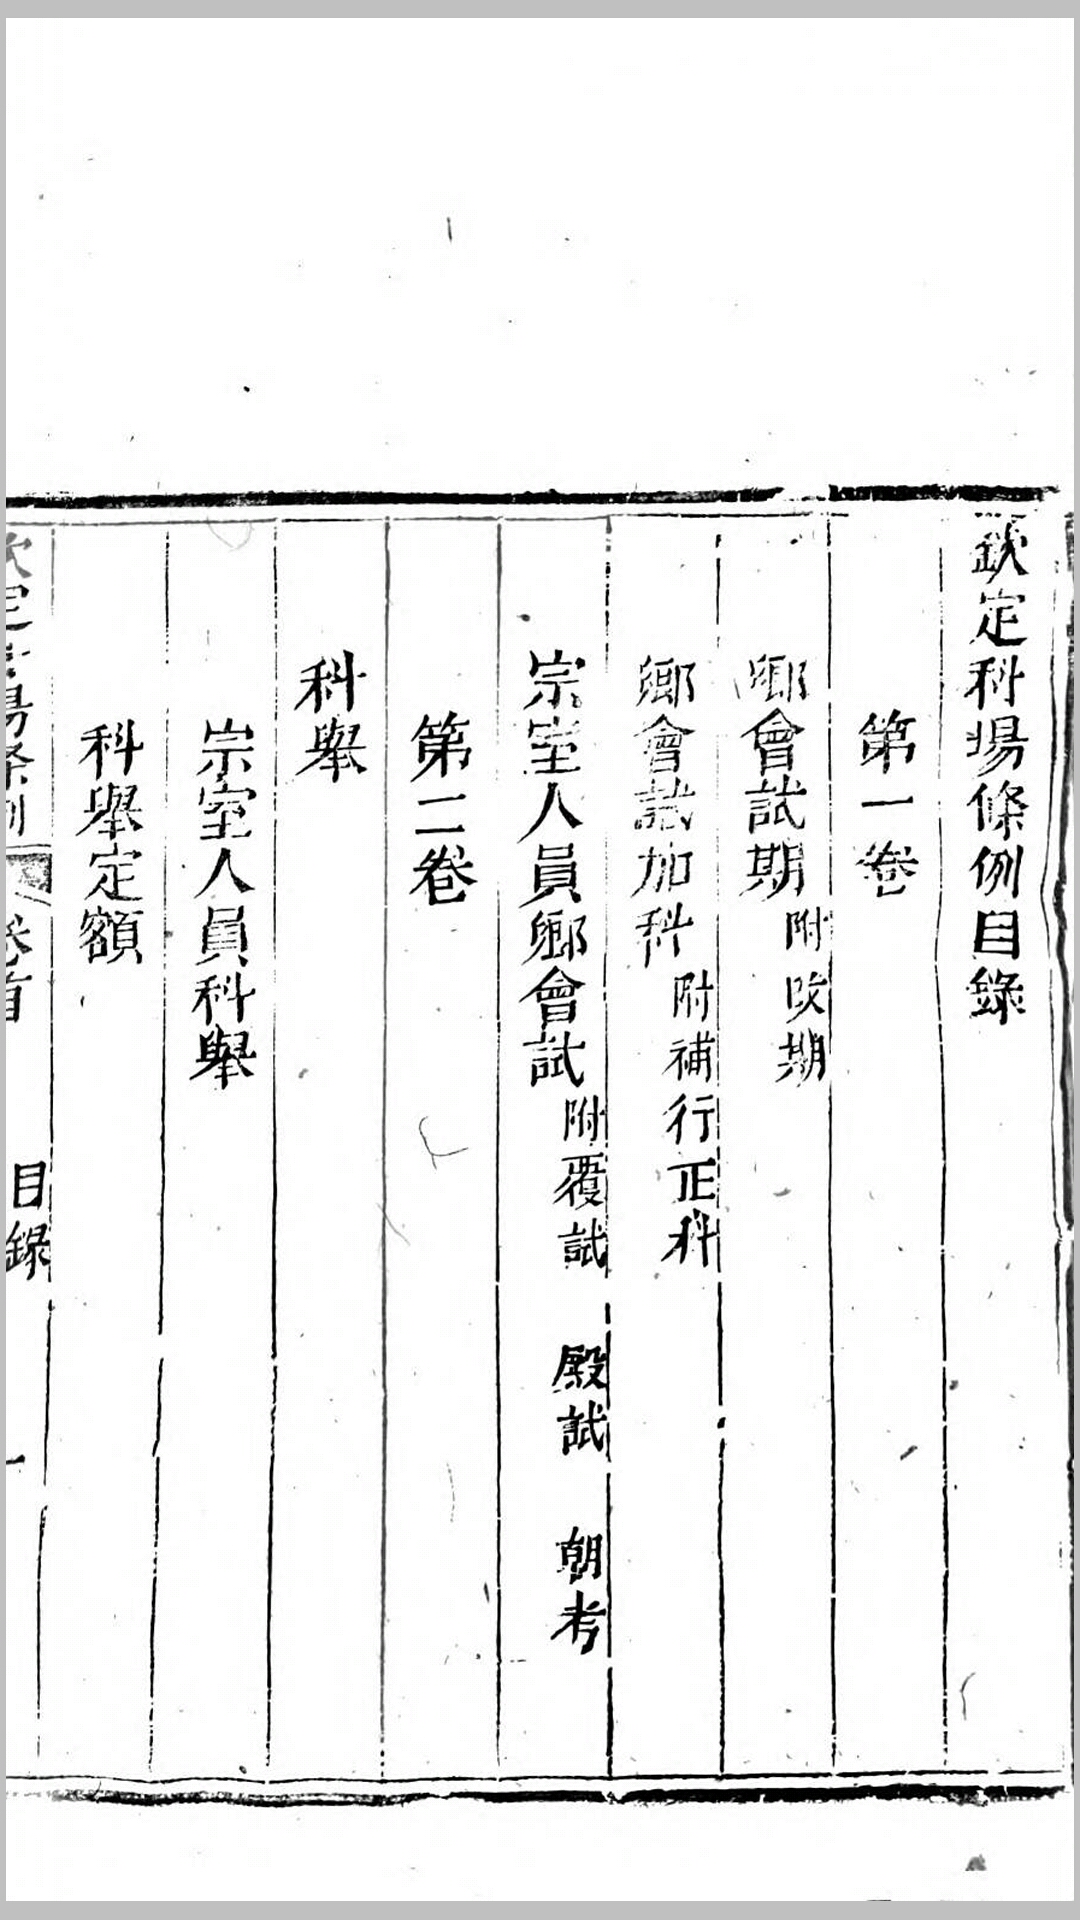 欽定科場條例目錄
第一卷
鄉會試期附改期
鄉會試加科附補行正科
宗室人員鄉會試附覆試 殿試 朝考
第二卷
科舉
宗室人員科舉
科舉定額
欽定科場條例 卷首 目錄 一